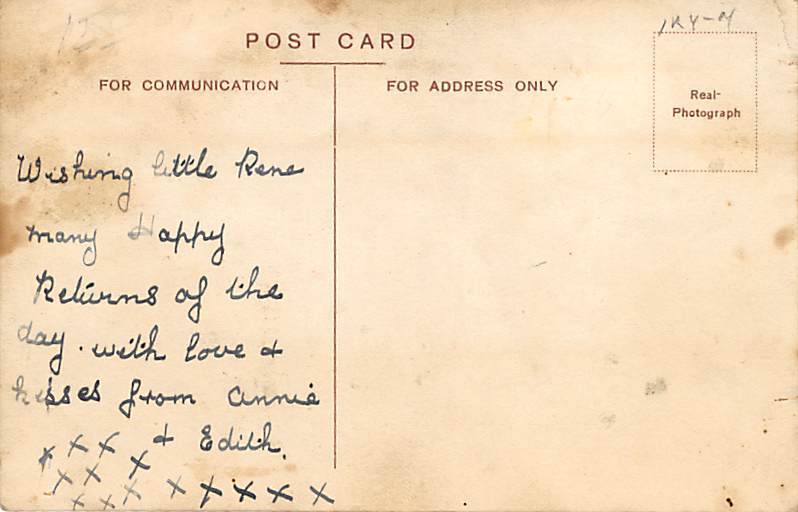 POST CARD
FOR COMMUNICATION
FOR ADDRESS ONLY
Real-
Photograph
Wishing little Rene
many Happy
Returns of the
day. with love &
kisses from Annie
& Edith.
x x x x
x x x x x x x x x